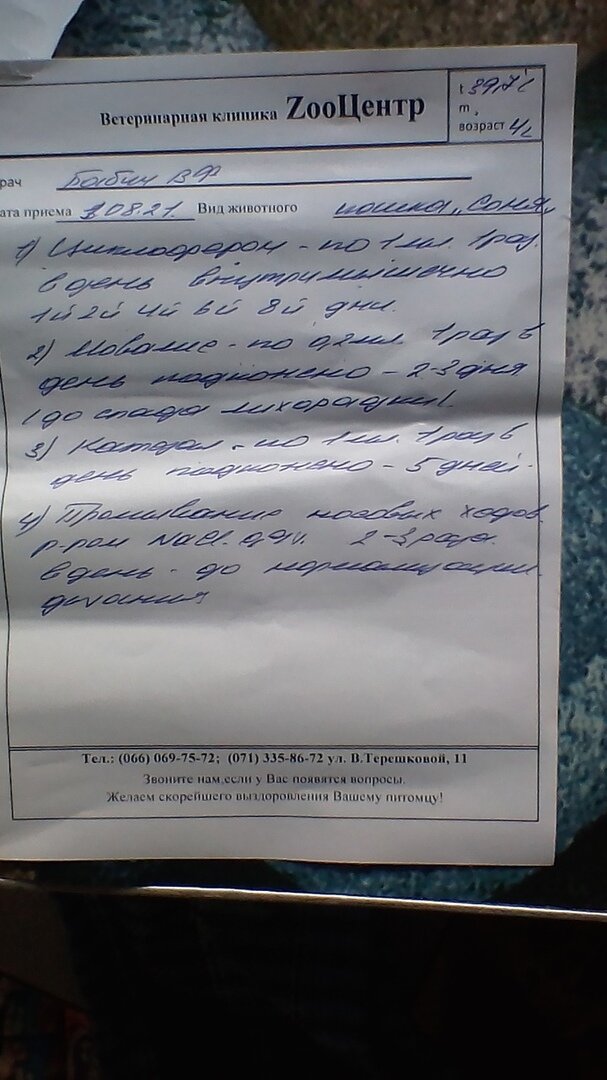 Ветеринарная клиника ZooЦентр
t 39,7°C
m,
возраст 4г
рач Бабич ВФ
ата приема 3.08.21. Вид животного кошка „Соня„
1) Циклоферон - по 1 мл. 1 раз.
в день внутримышечно
1й 2й 4й 6й 8й дни.
2) Мовалис - по 0,2 мл. 1 раз в
день подкожено - 2-3 дня
(до спада лихорадки(
3) - по 1 мл. 1 раз в
день подкожено - 5 дней.
4) Промывание носовых ходов
р-ром NaCl. 0,9%. 2-3 раза.
в день - до нормализации.
дыхания
Тел.: (066) 069-75-72; (071) 335-86-72 ул. В.Терешковой, 11
Звоните нам,если у Вас появятся вопросы.
Желаем скорейшего выздоровления Вашему питомцу!